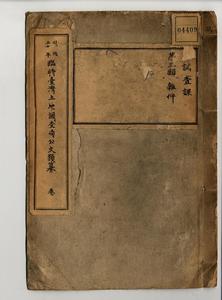 04409
調査課
第三類 雜件
明治
三十一年
臨時臺灣土地調查局公文類纂
卷